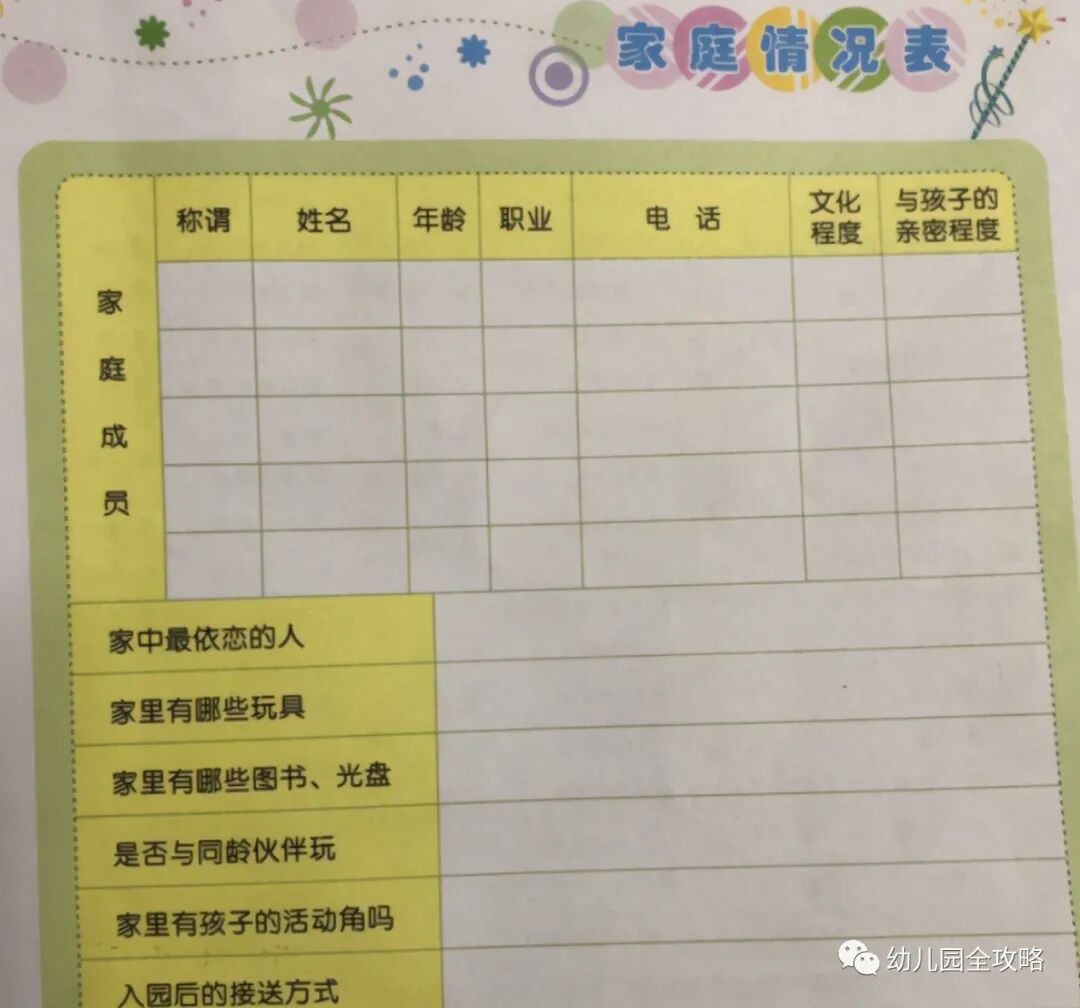 家庭情况表
称谓 姓名 年龄 职业 电 话 文化程度 与孩子的亲密程度
家庭成员
家中最依恋的人
家里有哪些玩具
家里有哪些图书、光盘
是否与同龄伙伴玩
家里有孩子的活动角吗
入园后的接送方式
幼儿园全攻略